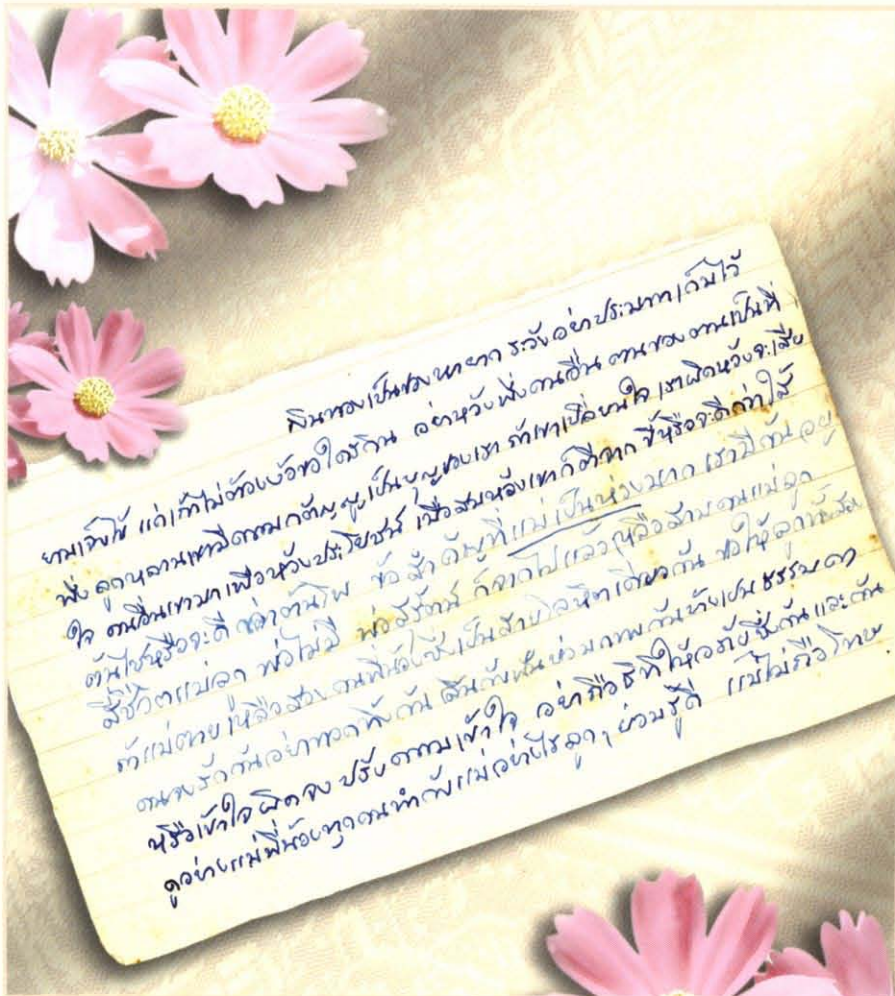 สินทองเป็นของหายาก ระวังอย่าประมาท เก็บไว้
ยามเจ็บไข้ แก่เฒ่าไม่ต้องง้อขอใครกิน อย่าหวังพึ่งคนอื่น ตนของตนเป็นที่
พึ่ง ลูกหลานเขามีความกตัญญูเป็นบุญของเรา ถ้าเขาเปลี่ยนใจ เราผิดหวังจะเสีย
ใจ คนอื่นเขามาเพื่อหวังประโยชน์ เมื่อสมหวังเขาก็ตีจาก ขี้หรือจะดีกว่าไส้
ต้นไข่หรือจะดีกว่าต้นโพ ข้อสำคัญที่แม่เป็นห่วงมาก เรามีกันอยู่
มีชีวิตแม่ลูก พ่อไม่มี พ่อ ก็จากไปแล้วเหลือสามคนแม่ลูก
ถ้าแม่ตาย เหลือสองคนพี่น้องซึ่งเป็นสายโลหิตเดียวกัน ขอให้ลูกทั้งสอง
คนจงรักกันอย่าทอดทิ้งกัน ลิ้นกับฟันย่อมกระทบกันบ้างเป็นธรรมดา
หรือเข้าใจผิดจงปรับความเข้าใจ อย่าถือธิฐิให้อภัยซึ่งกันและกัน
ดูอย่างแม่พี่น้องทุกคนทำกับแม่อย่างไรลูกๆ ย่อมรู้ดี แม่ไม่ถือโทษ